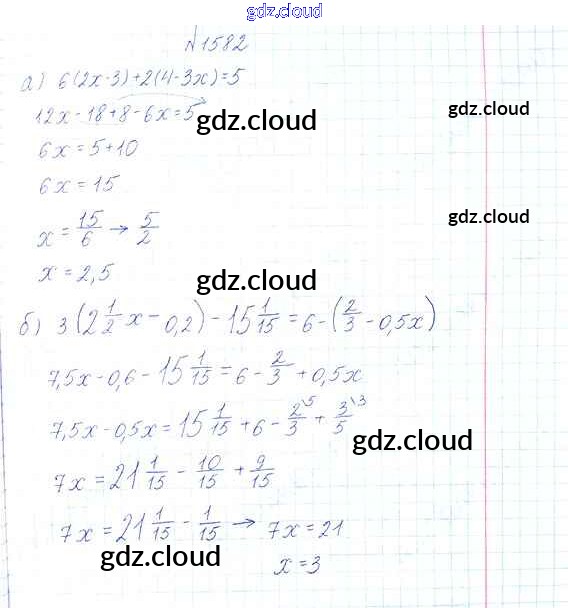 gdz.cloud
№1582
а) 6(2x-3)+2(4-3x)=5
12x-18+8-6x=5
gdz.cloud gdz.cloud
6x=5+10
6x=15
x=15/6 → 5/2
gdz.cloud
x=2,5
gdz.cloud
б) 3(2 1/2 x - 0,2) - 15 1/15 = 6 - (2/3 - 0,5x)
7,5x - 0,6 - 15 1/15 = 6 - 2/3 + 0,5x
7,5x - 0,5x = 15 1/15 + 6 - 2\5/3 + 3\3/5
gdz.cloud gdz.cloud
7x = 21 1/15 - 10/15 + 9/15
7x = 21 1/15 - 1/15 → 7x=21
gdz.cloud gdz.cloud
x=3